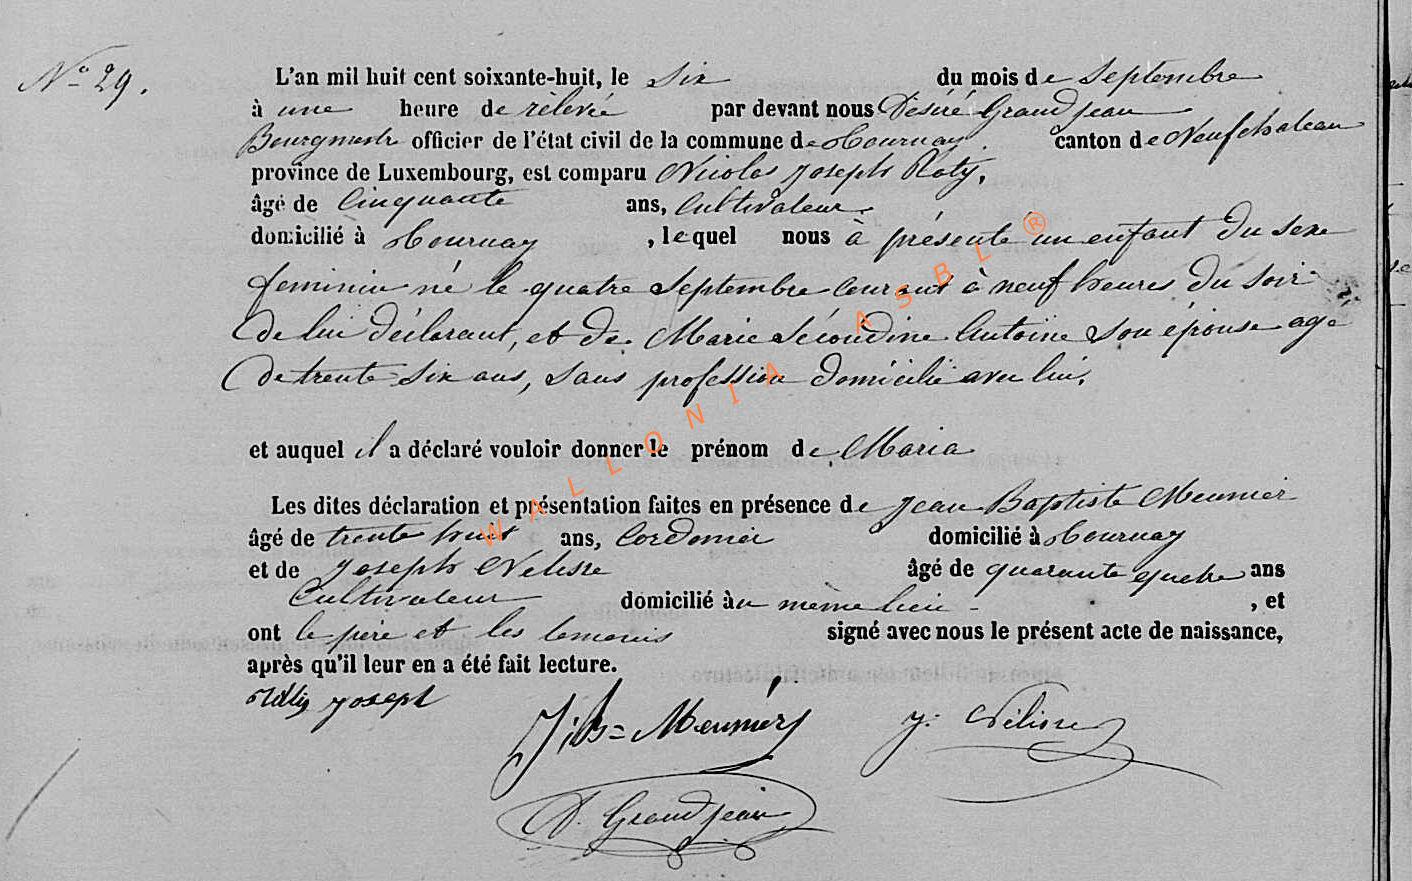 N° 29.
L'an mil huit cent soixante-huit, le six du mois de Septembre
à une heure de rélevée par devant nous Désiré Grandjean
Bourgmestre officier de l'état civil de la commune de Tournay. canton de Neufchateau
province de Luxembourg, est comparu Nicolas Joseph Roty,
âgé de Cinquante ans, Cultivateur.
domicilié à Tournay, lequel nous à présenté un enfant du sexe
féminin né le quatre Septembre courant à neuf heures du soir
de lui déclarant, et de Marie Sécondine Antoine son épouse agé
de trente six ans, sans profession domicilié avec lui.
et auquel il a déclaré vouloir donner le prénom de Maria
Les dites déclaration et présentation faites en présence de Jean Baptiste Meunier
âgé de trente huit ans, Cordonier domicilié à Tournay
et de Joseph Nélisse âgé de quarante quatre ans
Cultivateur domicilié àu même lieu - , et
ont le père et les temoins signé avec nous le présent acte de naissance,
après qu'il leur en a été fait lecture.
Joseph
J: Bs= Meunier J: Nélisse
D. Grandjean
WALLONIA ASBL ®